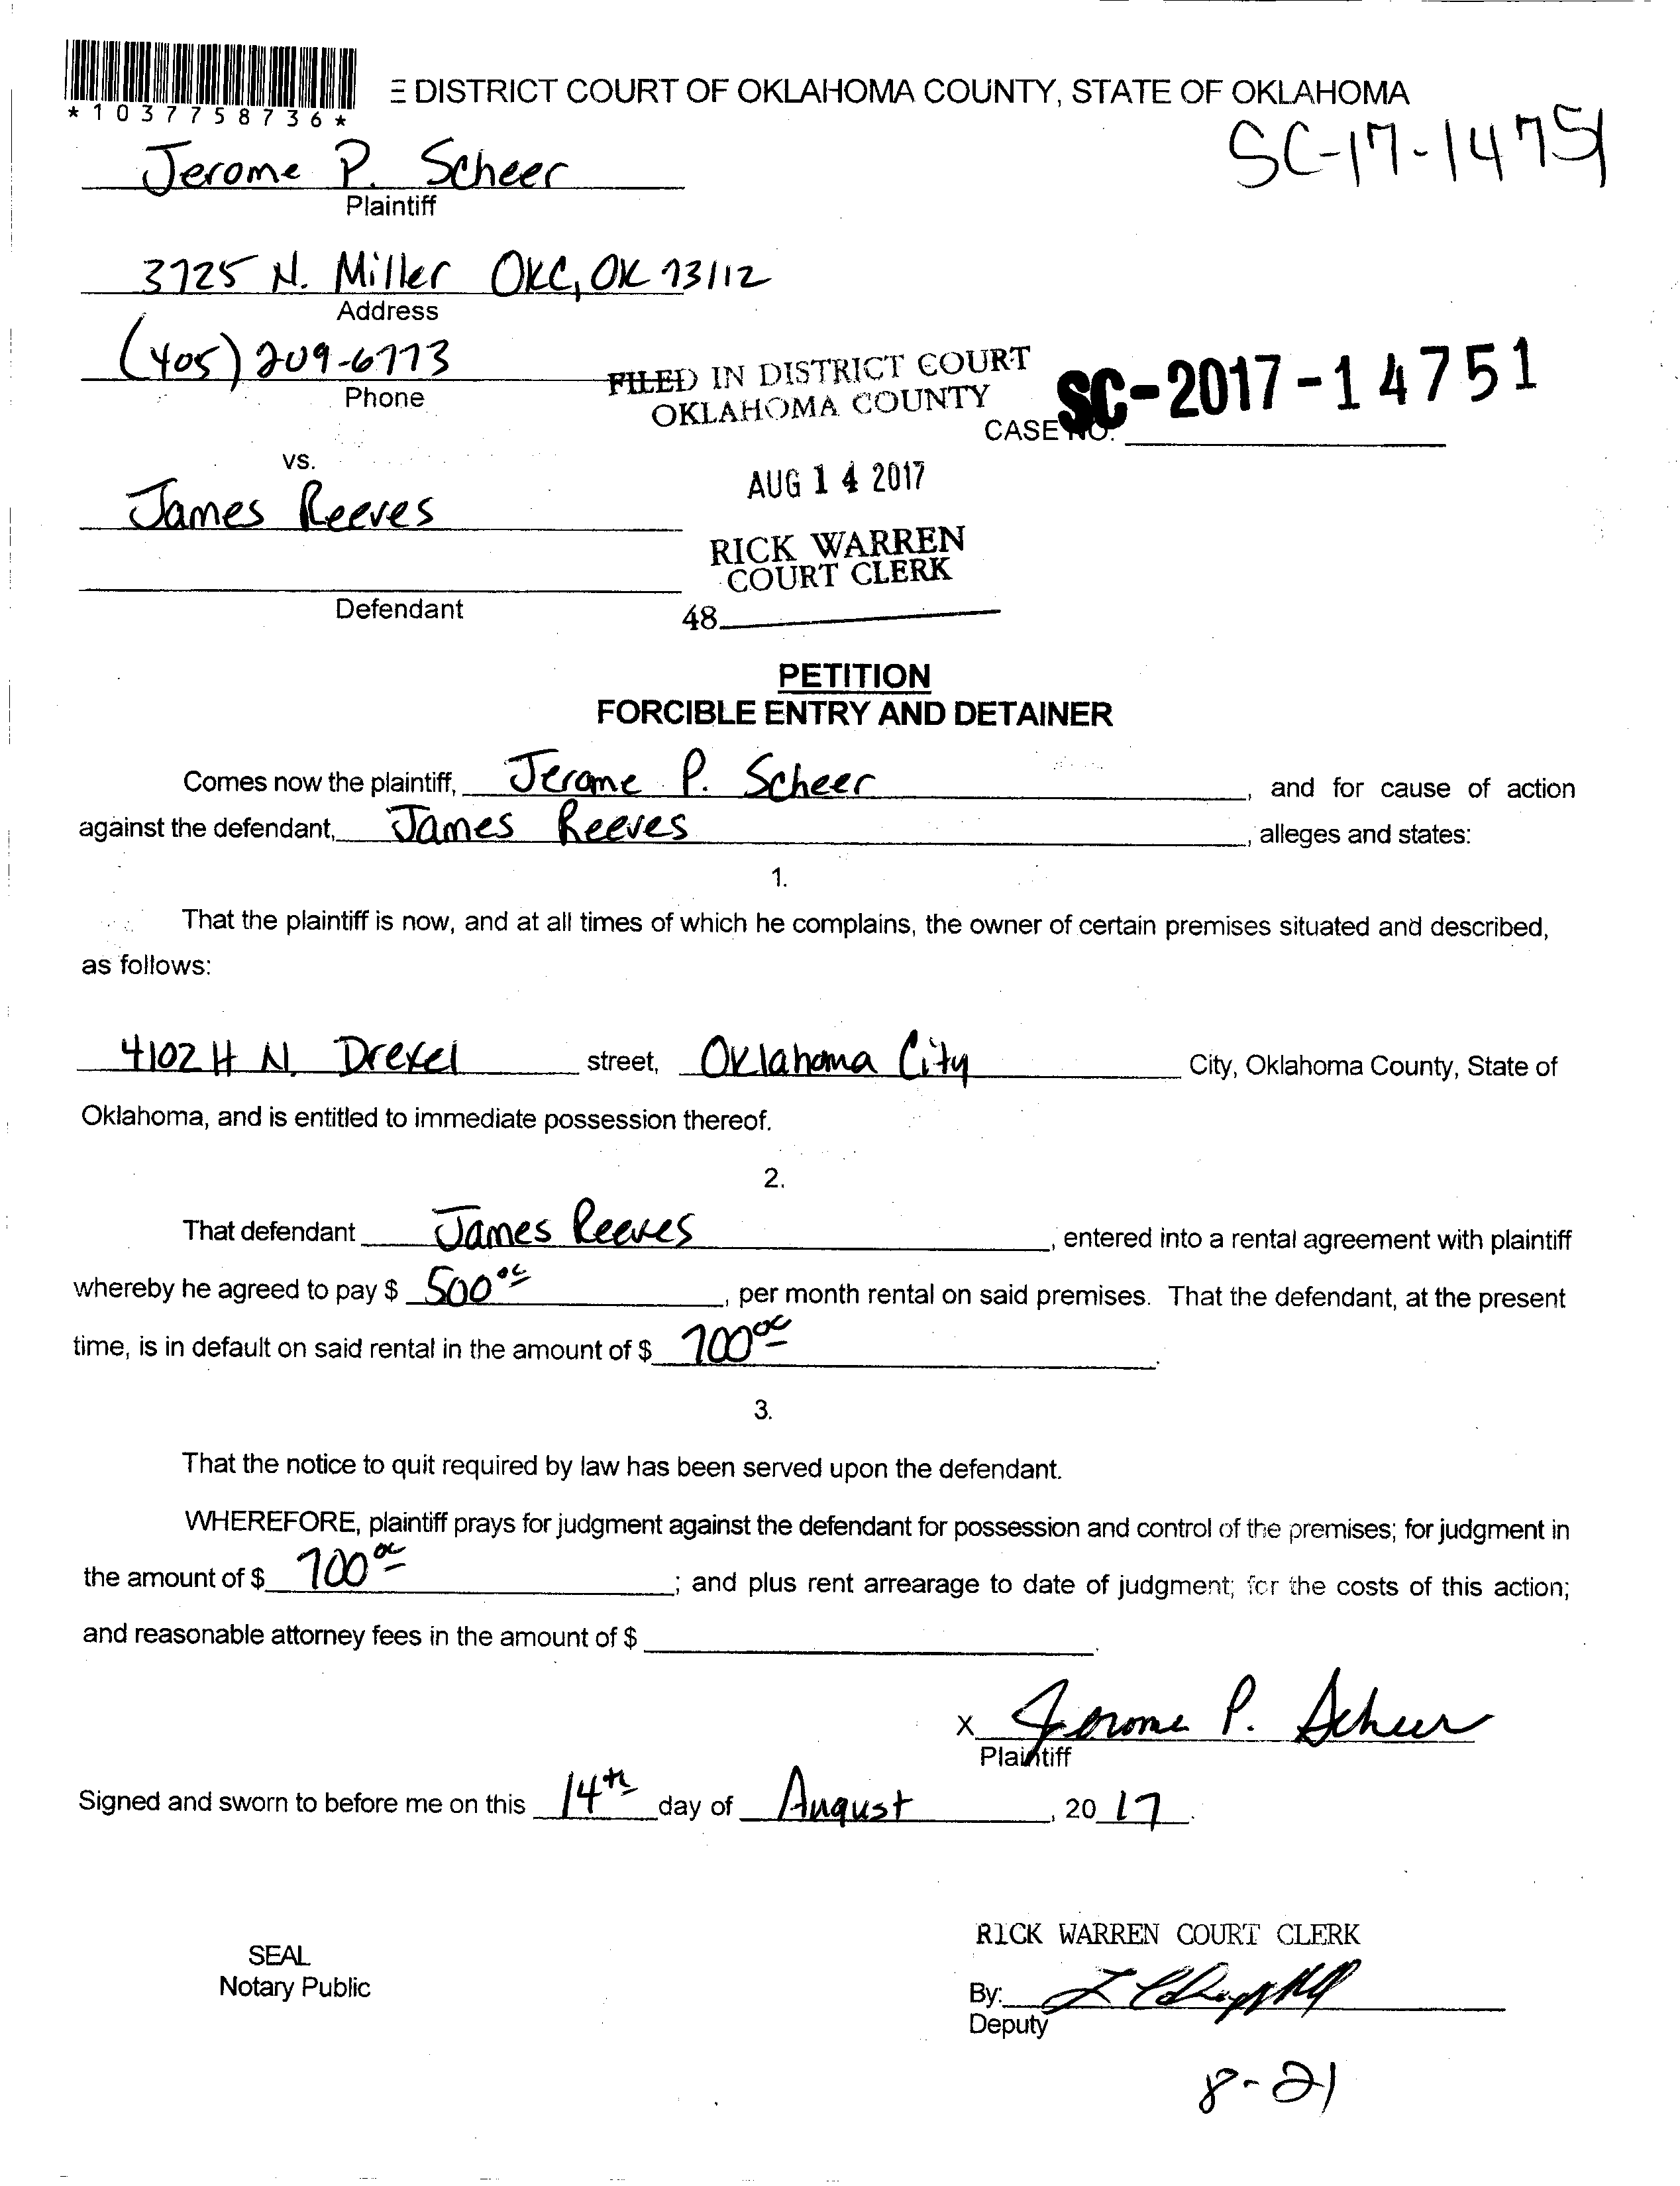 *1037758736*
DISTRICT COURT OF OKLAHOMA COUNTY, STATE OF OKLAHOMA
SC-17-14751
Jerome P. Scheer
Plaintiff
3725 N. Miller OKC, OK 73112
Address
(405) 209-6773
Phone
FILED IN DISTRICT COURT
OKLAHOMA COUNTY
CASE NO. SC-2017-14751
vs.
AUG 14 2017
James Reeves
RICK WARREN
COURT CLERK
Defendant
48
PETITION
FORCIBLE ENTRY AND DETAINER
Comes now the plaintiff, Jerome P. Scheer, and for cause of action
against the defendant, James Reeves, alleges and states:
1.
That the plaintiff is now, and at all times of which he complains, the owner of certain premises situated and described,
as follows:
4102 H N. Drexel street, Oklahoma City City, Oklahoma County, State of
Oklahoma, and is entitled to immediate possession thereof.
2.
That defendant James Reeves, entered into a rental agreement with plaintiff
whereby he agreed to pay $ 500 00, per month rental on said premises. That the defendant, at the present
time, is in default on said rental in the amount of $ 700 00.
3.
That the notice to quit required by law has been served upon the defendant.
WHEREFORE, plaintiff prays for judgment against the defendant for possession and control of the premises; for judgment in
the amount of $ 700 00; and plus rent arrearage to date of judgment; for the costs of this action;
and reasonable attorney fees in the amount of $ .
x Jerome P. Scheer
Plaintiff
Signed and sworn to before me on this 14th day of August, 20 17.
RICK WARREN COURT CLERK
SEAL
Notary Public
By:
Deputy
8-21